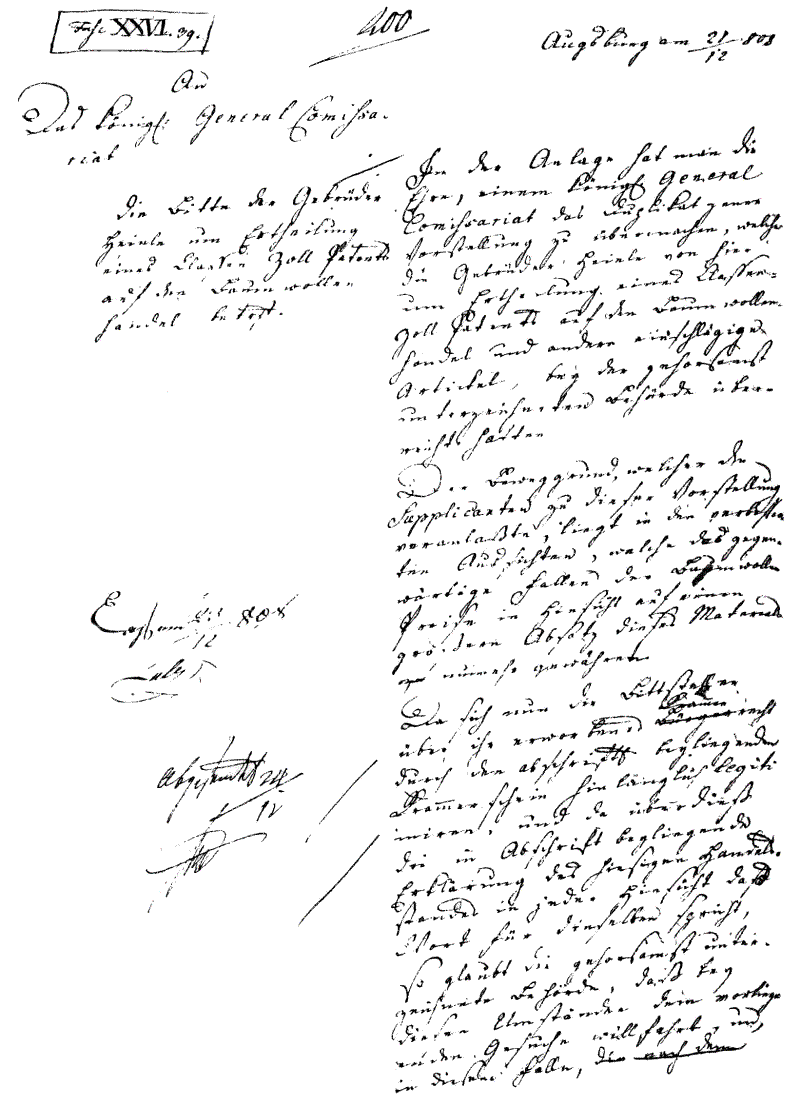 Fasc XXVI. 39.
200
Augsburg am 21/12 808
An
Das Königl: General Comissa-
riat
die Bitte der Gebrüder
Heinle um Ertheilung
eines Classen Zoll Patents
auf den Baumwollen
handel betrff.
In der Anlage hat man die
Ehre, einem Königl General
Comissariat das Duplikat jener
Vorstellung zu übermachen, welche
die Gebrüder Heinle von hier
um Ertheilung eines Classen-
Zoll Patents auf den Baumwollen-
handel und andere einschlägige
Artickel, bey der gehorsamst
unterzeichneten Behörde über-
reicht hatten
Der Beweggrund, welcher die
Supplicanten zu dieser Vorstellung
veranlaßte, liegt in den verbesser-
ten Aussichten, welche das gegen-
wärtige Fallen der Baumwolle
Preise in Hinsicht auf einen
größern Absatz dieses Materials
nunmehr gewähren
Da sich nun die Bittsteller
über ihr erworbenes Kramerrecht
durch den abschriftl beyliegenden
Krammerschein hinlänglich legiti
miren, und da überdieß
die in Abschrift beyliegende
Erklärung des hiesigen Handels-
standes in jeder Hinsicht das
Wort für dieselben spricht,
so glaubt die gehorsamst unter-
zeichnete Behörde, daß bey
diesen Umständen dem vorliege
nden Gesuche willfahrt, und
in diesem Falle, die nach dem
Exp am 21/12 808
Abgesendet 24/12